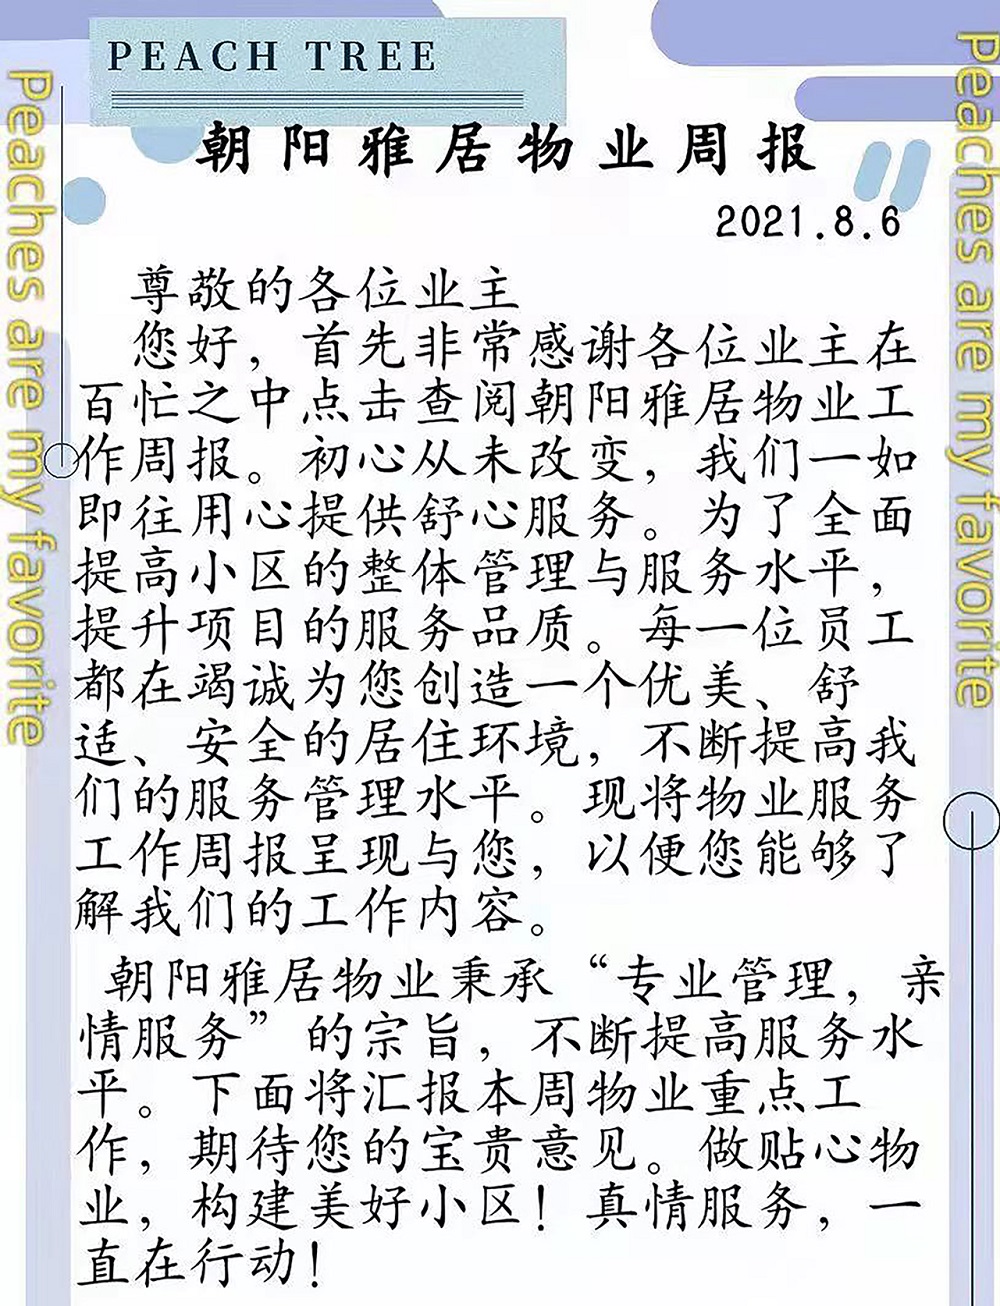 PEACH TREE
朝阳雅居物业周报
2021.8.6
尊敬的各位业主
您好，首先非常感谢各位业主在
百忙之中点击查阅朝阳雅居物业工
作周报。初心从未改变，我们一如
即往用心提供舒心服务。为了全面
提高小区的整体管理与服务水平，
提升项目的服务品质。每一位员工
都在竭诚为您创造一个优美、舒
适、安全的居住环境，不断提高我
们的服务管理水平。现将物业服务
工作周报呈现与您，以便您能够了
解我们的工作内容。
朝阳雅居物业秉承“专业管理，亲
情服务”的宗旨，不断提高服务水
平。下面将汇报本周物业重点工
作，期待您的宝贵意见。做贴心物
业，构建美好小区！真情服务，一
直在行动！
Peaches are my favorite
Peaches are my favorite